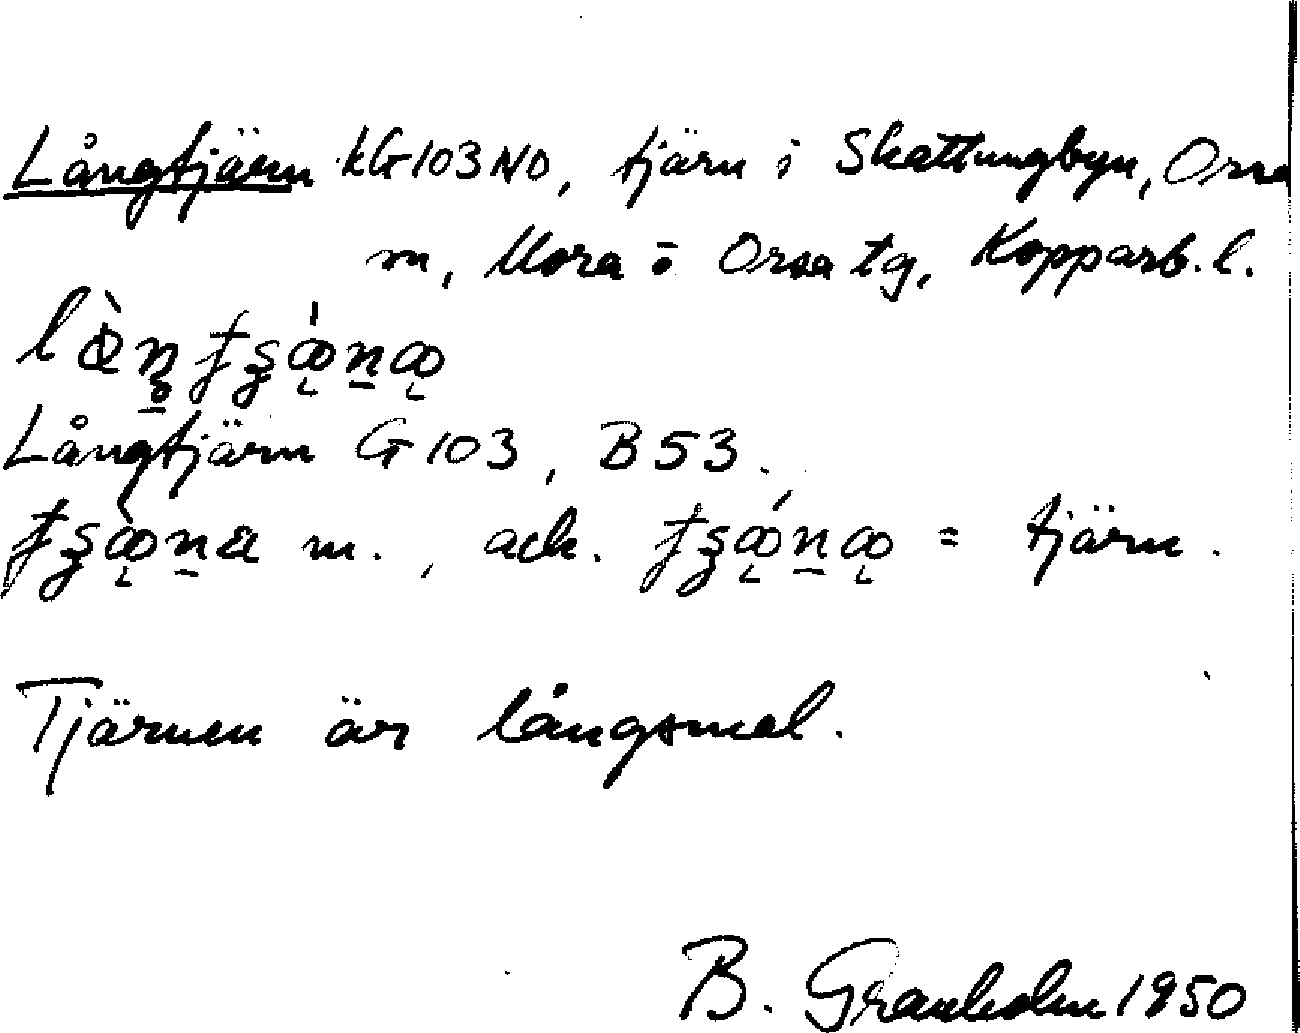 Långtjärn kG103NO, tjärn i Skattungbyn, Orsa
m, Mora o Orsa tg, Kopparb. l.
Långtjärn G103, B53.
m., ack. = tjärn.
Tjärnen är långsmal.
B. Granholm 1950